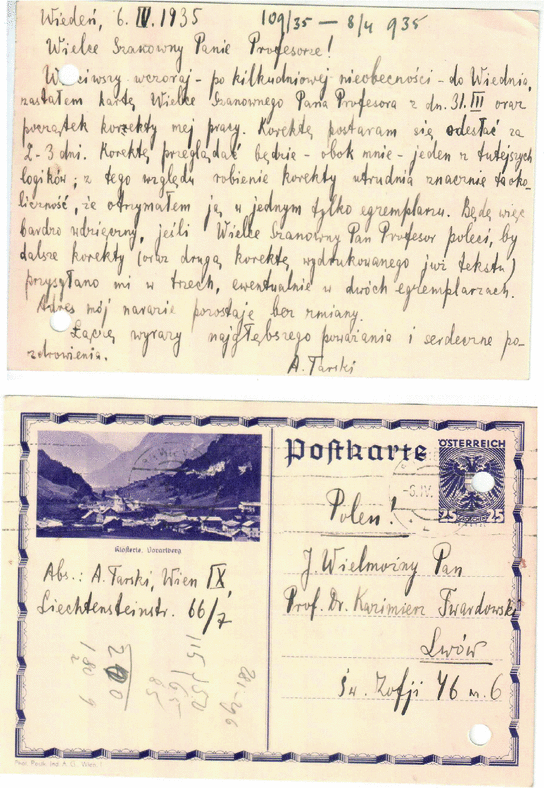 Wiedeń, 6. IV. 1935
109/35 — 8/4 935
Wielce Szanowny Panie Profesorze!
Wróciwszy wczoraj - po kilkudniowej nieobecności - do Wiednia,
zastałem kartę Wielce Szanownego Pana Profesora z dn. 31. III oraz
początek korekty mej pracy. Korektę postaram się odesłać za
2-3 dni. Korektę przeglądać będzie - obok mnie - jeden z tutejszych
logików; z tego względu robienie korekty utrudnia znacznie ta oko-
liczność, że otrzymałem ją w jednym tylko egzemplarzu. Będę więc
bardzo wdzięczny, jeśli Wielce Szanowny Pan Profesor poleci, by
dalsze korekty (oraz drugą korektę wydrukowanego już tekstu)
przysyłano mi w trzech, ewentualnie w dwóch egzemplarzach.
Adres mój narazie pozostaje bez zmiany.
Łączę wyrazy najgłębszego poważania i serdeczne po-
zdrowienia.
A. Tarski
Postkarte
ÖSTERREICH
25 25
Klösterle, Vorarlberg
Abs.: A. Tarski, Wien IX,
Liechtensteinstr. 66/7
Polen!
J. Wielmożny Pan
Prof. Dr. Kazimierz Twardowski
Lwów
Św. Zofji 46 m. 6